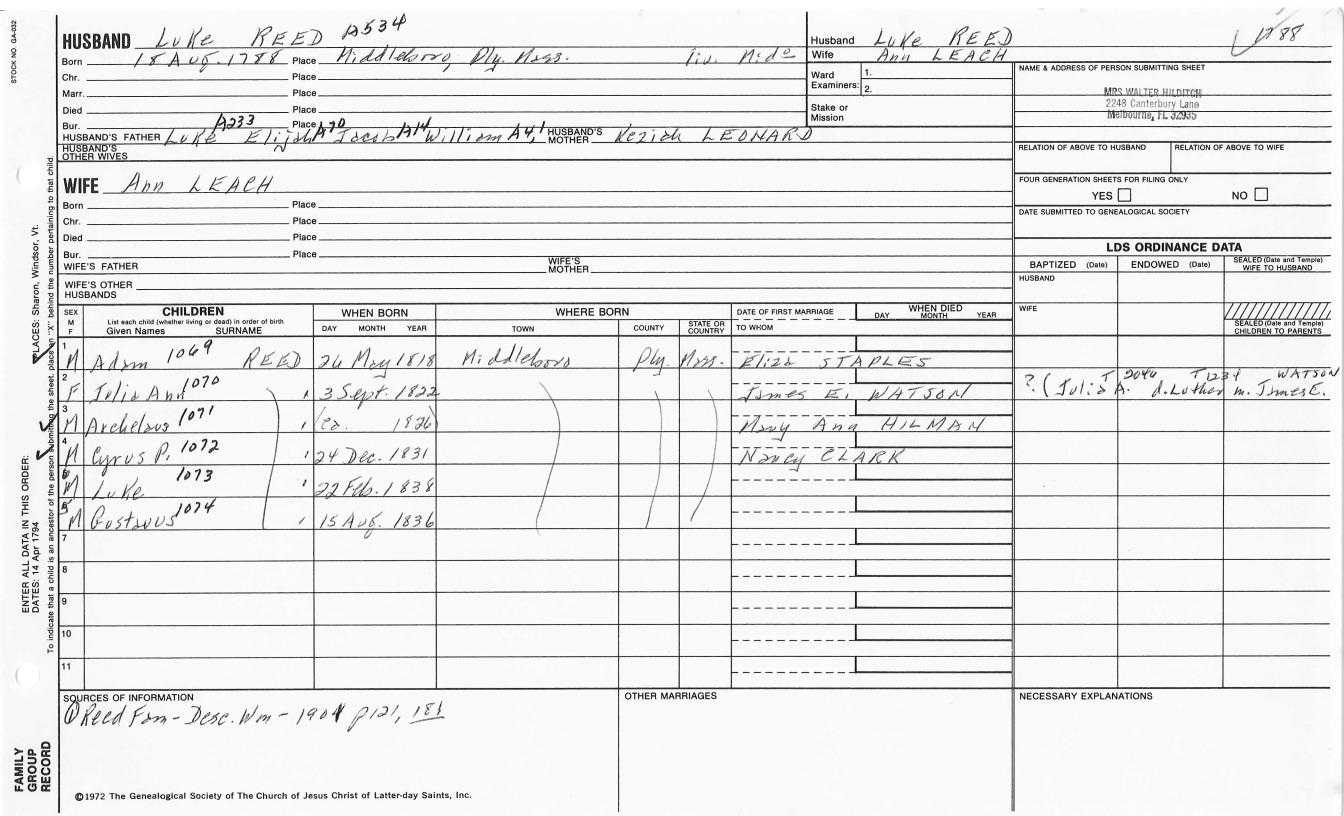 STOCK NO. GA-032
HUSBAND Luke REED A534
Born 18 Aug. 1788 Place Middleboro, Ply. Mass. liv. Mid°
Chr. Place
Marr. Place
Died Place
Bur. Place
HUSBAND'S FATHER Luke A233 Elijah A90 Jacob A14 William A4,1 HUSBAND'S MOTHER Keziah LEONARD
HUSBAND'S OTHER WIVES
Husband Luke REED
Wife Ann LEACH
1788
Ward Examiners: 1.
2.
Stake or Mission
NAME & ADDRESS OF PERSON SUBMITTING SHEET
MRS WALTER HILDITCH
2248 Canterbury Lane
Melbourne, FL 32935
RELATION OF ABOVE TO HUSBAND RELATION OF ABOVE TO WIFE
FOUR GENERATION SHEETS FOR FILING ONLY
YES NO
DATE SUBMITTED TO GENEALOGICAL SOCIETY
WIFE Ann LEACH
Born Place
Chr. Place
Died Place
Bur. Place
WIFE'S FATHER WIFE'S MOTHER
WIFE'S OTHER HUSBANDS
LDS ORDINANCE DATA
BAPTIZED (Date) ENDOWED (Date) SEALED (Date and Temple) WIFE TO HUSBAND
HUSBAND
WIFE
SEALED (Date and Temple) CHILDREN TO PARENTS
SEX M F CHILDREN WHEN BORN WHERE BORN DATE OF FIRST MARRIAGE WHEN DIED
List each child (whether living or dead) in order of birth
Given Names SURNAME DAY MONTH YEAR TOWN COUNTY STATE OR COUNTRY TO WHOM DAY MONTH YEAR
1 M Adam 1069 REED 26 May 1818 Middleboro Ply. Mass. Eliza STAPLES
2 F Julia Ann 1070 3 Sept. 1822 James E. WATSON ?( Julia A. T 2046 d. Luther T1234 m. James E. WATSON
3 M Archelaus 1071 (ca. 1826) Mary Ann HILMAN
4 M Cyrus P. 1072 24 Dec. 1831 Nancy CLARK
6 M Luke 1073 22 Feb. 1838
5 M Gustavus 1074 15 Aug. 1836
7
8
9
10
11
SOURCES OF INFORMATION
① Reed Fam - Desc. Wm - 1901 p121, 181
OTHER MARRIAGES
NECESSARY EXPLANATIONS
©1972 The Genealogical Society of The Church of Jesus Christ of Latter-day Saints, Inc.
FAMILY GROUP RECORD
ENTER ALL DATA IN THIS ORDER:
DATES: 14 Apr 1794 PLACES: Sharon, Windsor, Vt.
To indicate that a child is an ancestor of the person submitting the sheet, place an "X" behind the number pertaining to that child.